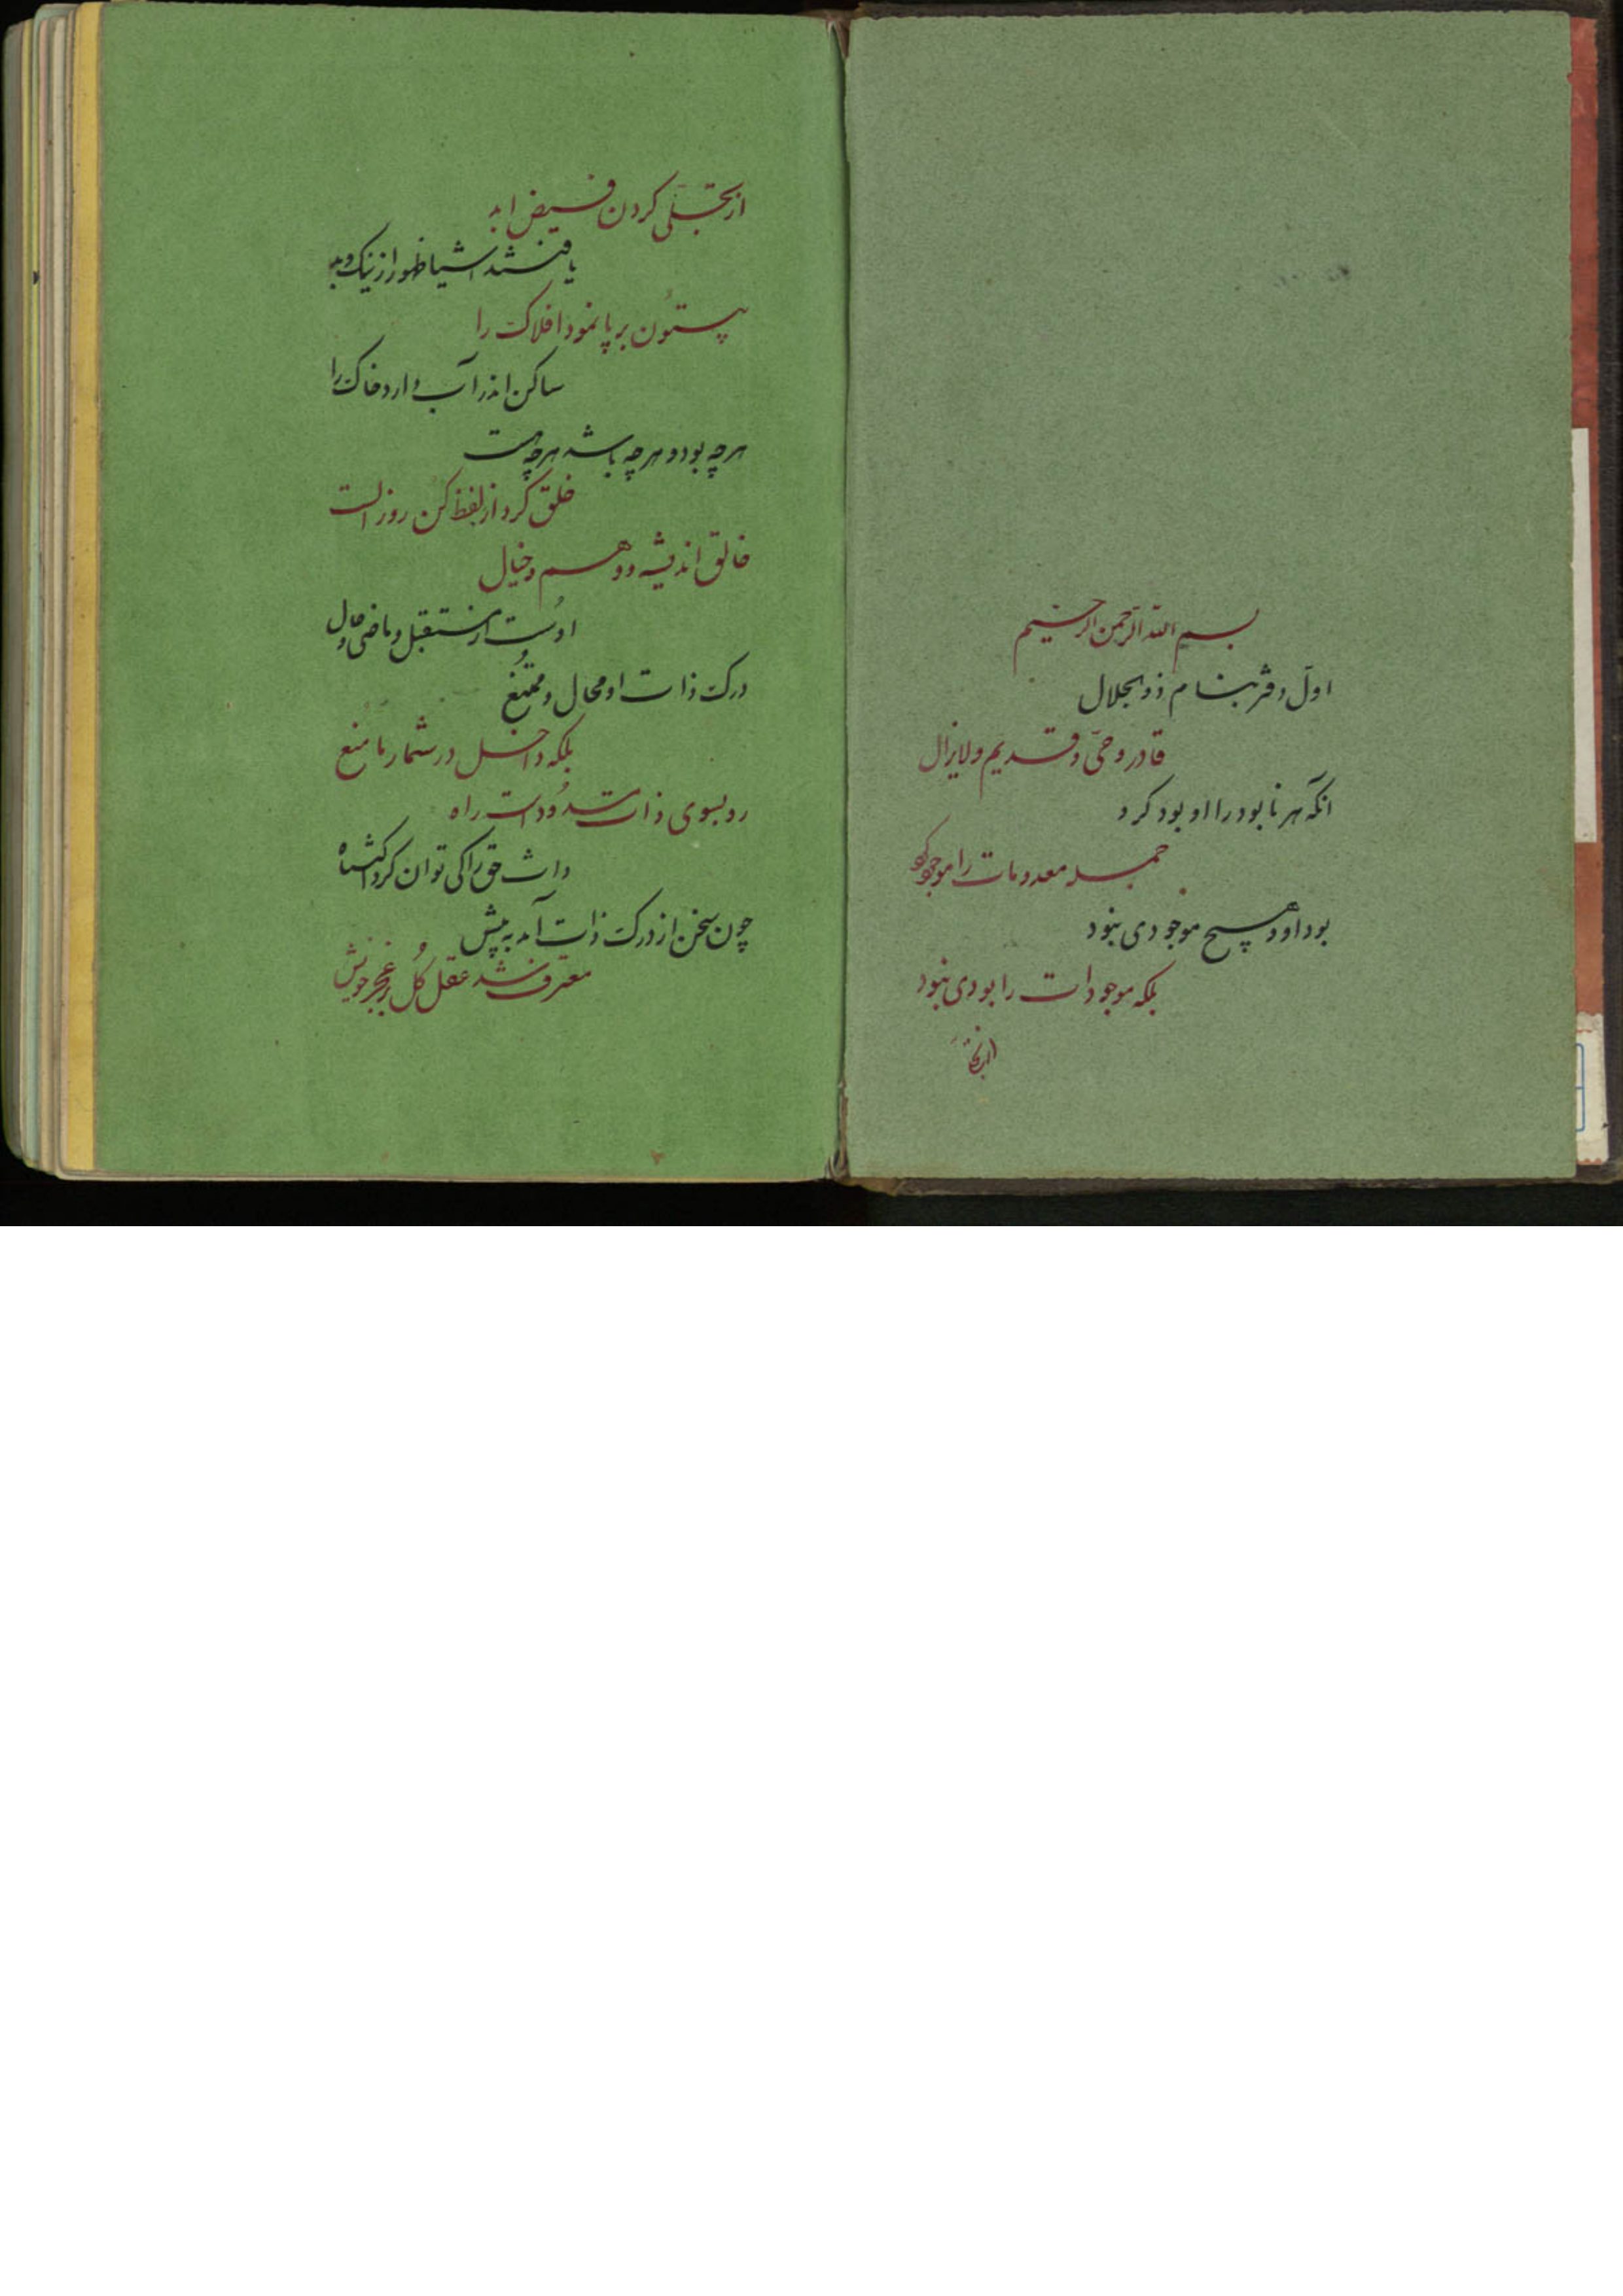 بسم الله الرحمن الرحیم
اول دفتر بنام ذوالجلال
قادر و حیّ و قدیم و لایزال
انکه هر نابود را او بود کرد
جمله معدومات را موجود کرد
بود او و هیچ موجودی نبود
بلکه موجودات را بودی نبود
از تجلّی کردن فیض ابد
یافتند اشیا ظهور از نیک و بد
بیستُون بر پا نمود افلاک را
ساکن اندر آب دارد خاک را
هرچه بود و هرچه باشد هرچه هست
خلق کرد از لفظ کن روز الست
خالق اندیشه و وهم و خیال
اوست از مستقبل و ماضی و حال
درک ذات او محال و ممتنع
بلکه داخل در شمار ما منع
رو بسوی ذات مسدُود است راه
ذات حق را کی توان کرد اکتناه
چون سخن از درک ذات آمد به پیش
معترف شد عقل کُل بر عجز خویش